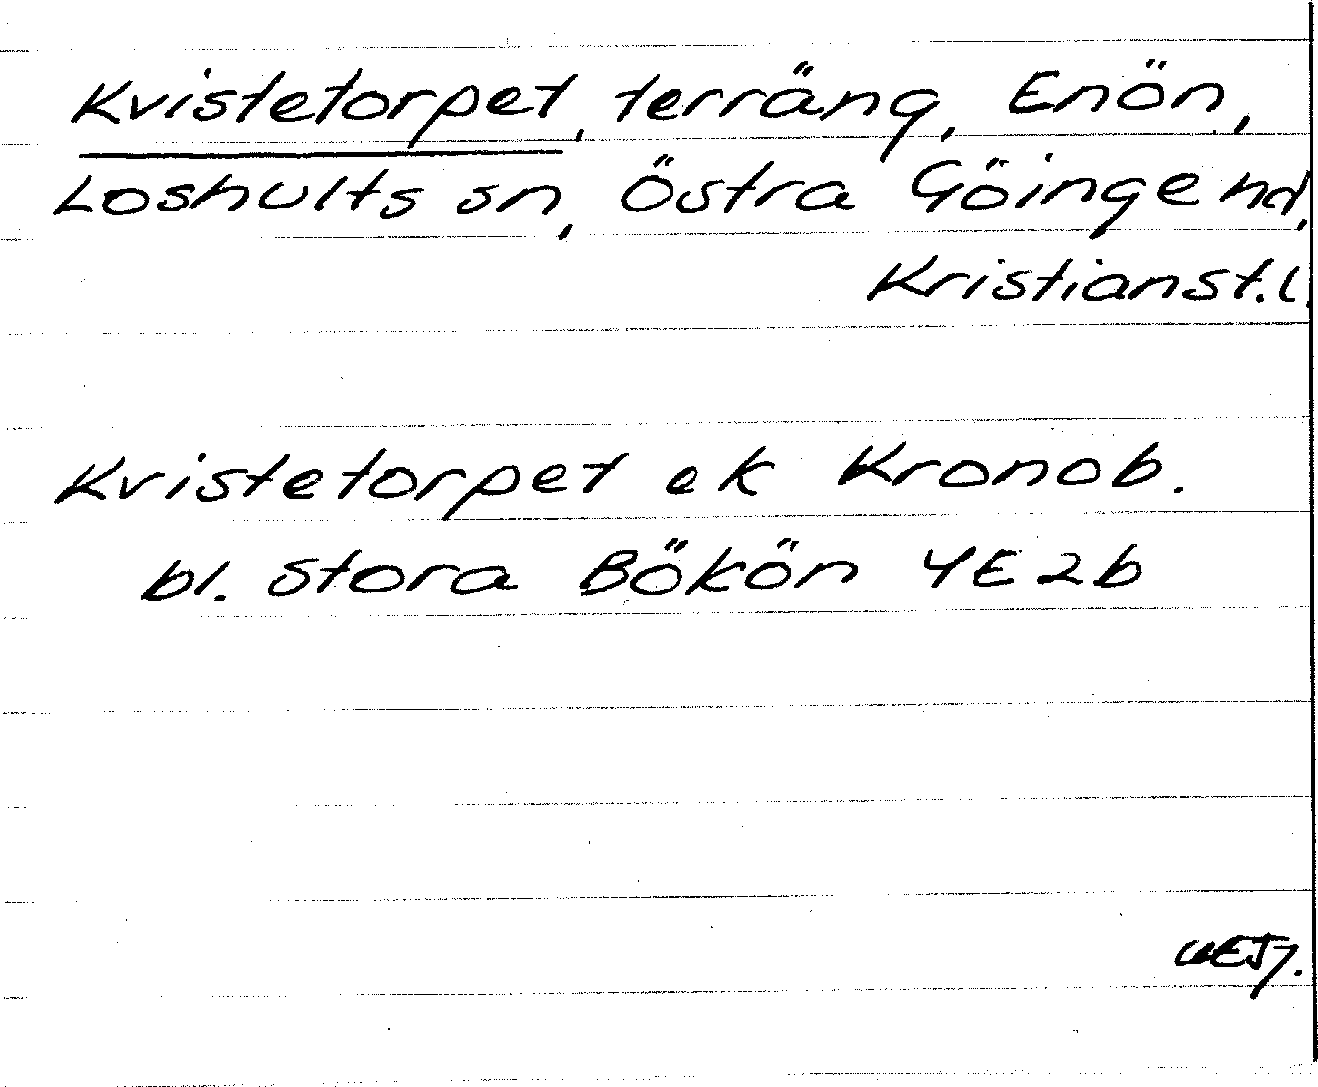 Kvistetorpet, terräng, Enön,
Loshults sn, Östra Göinge hd,
Kristianst. l.
Kvistetorpet ek Kronob.
bl. Stora Bökön 4E2b